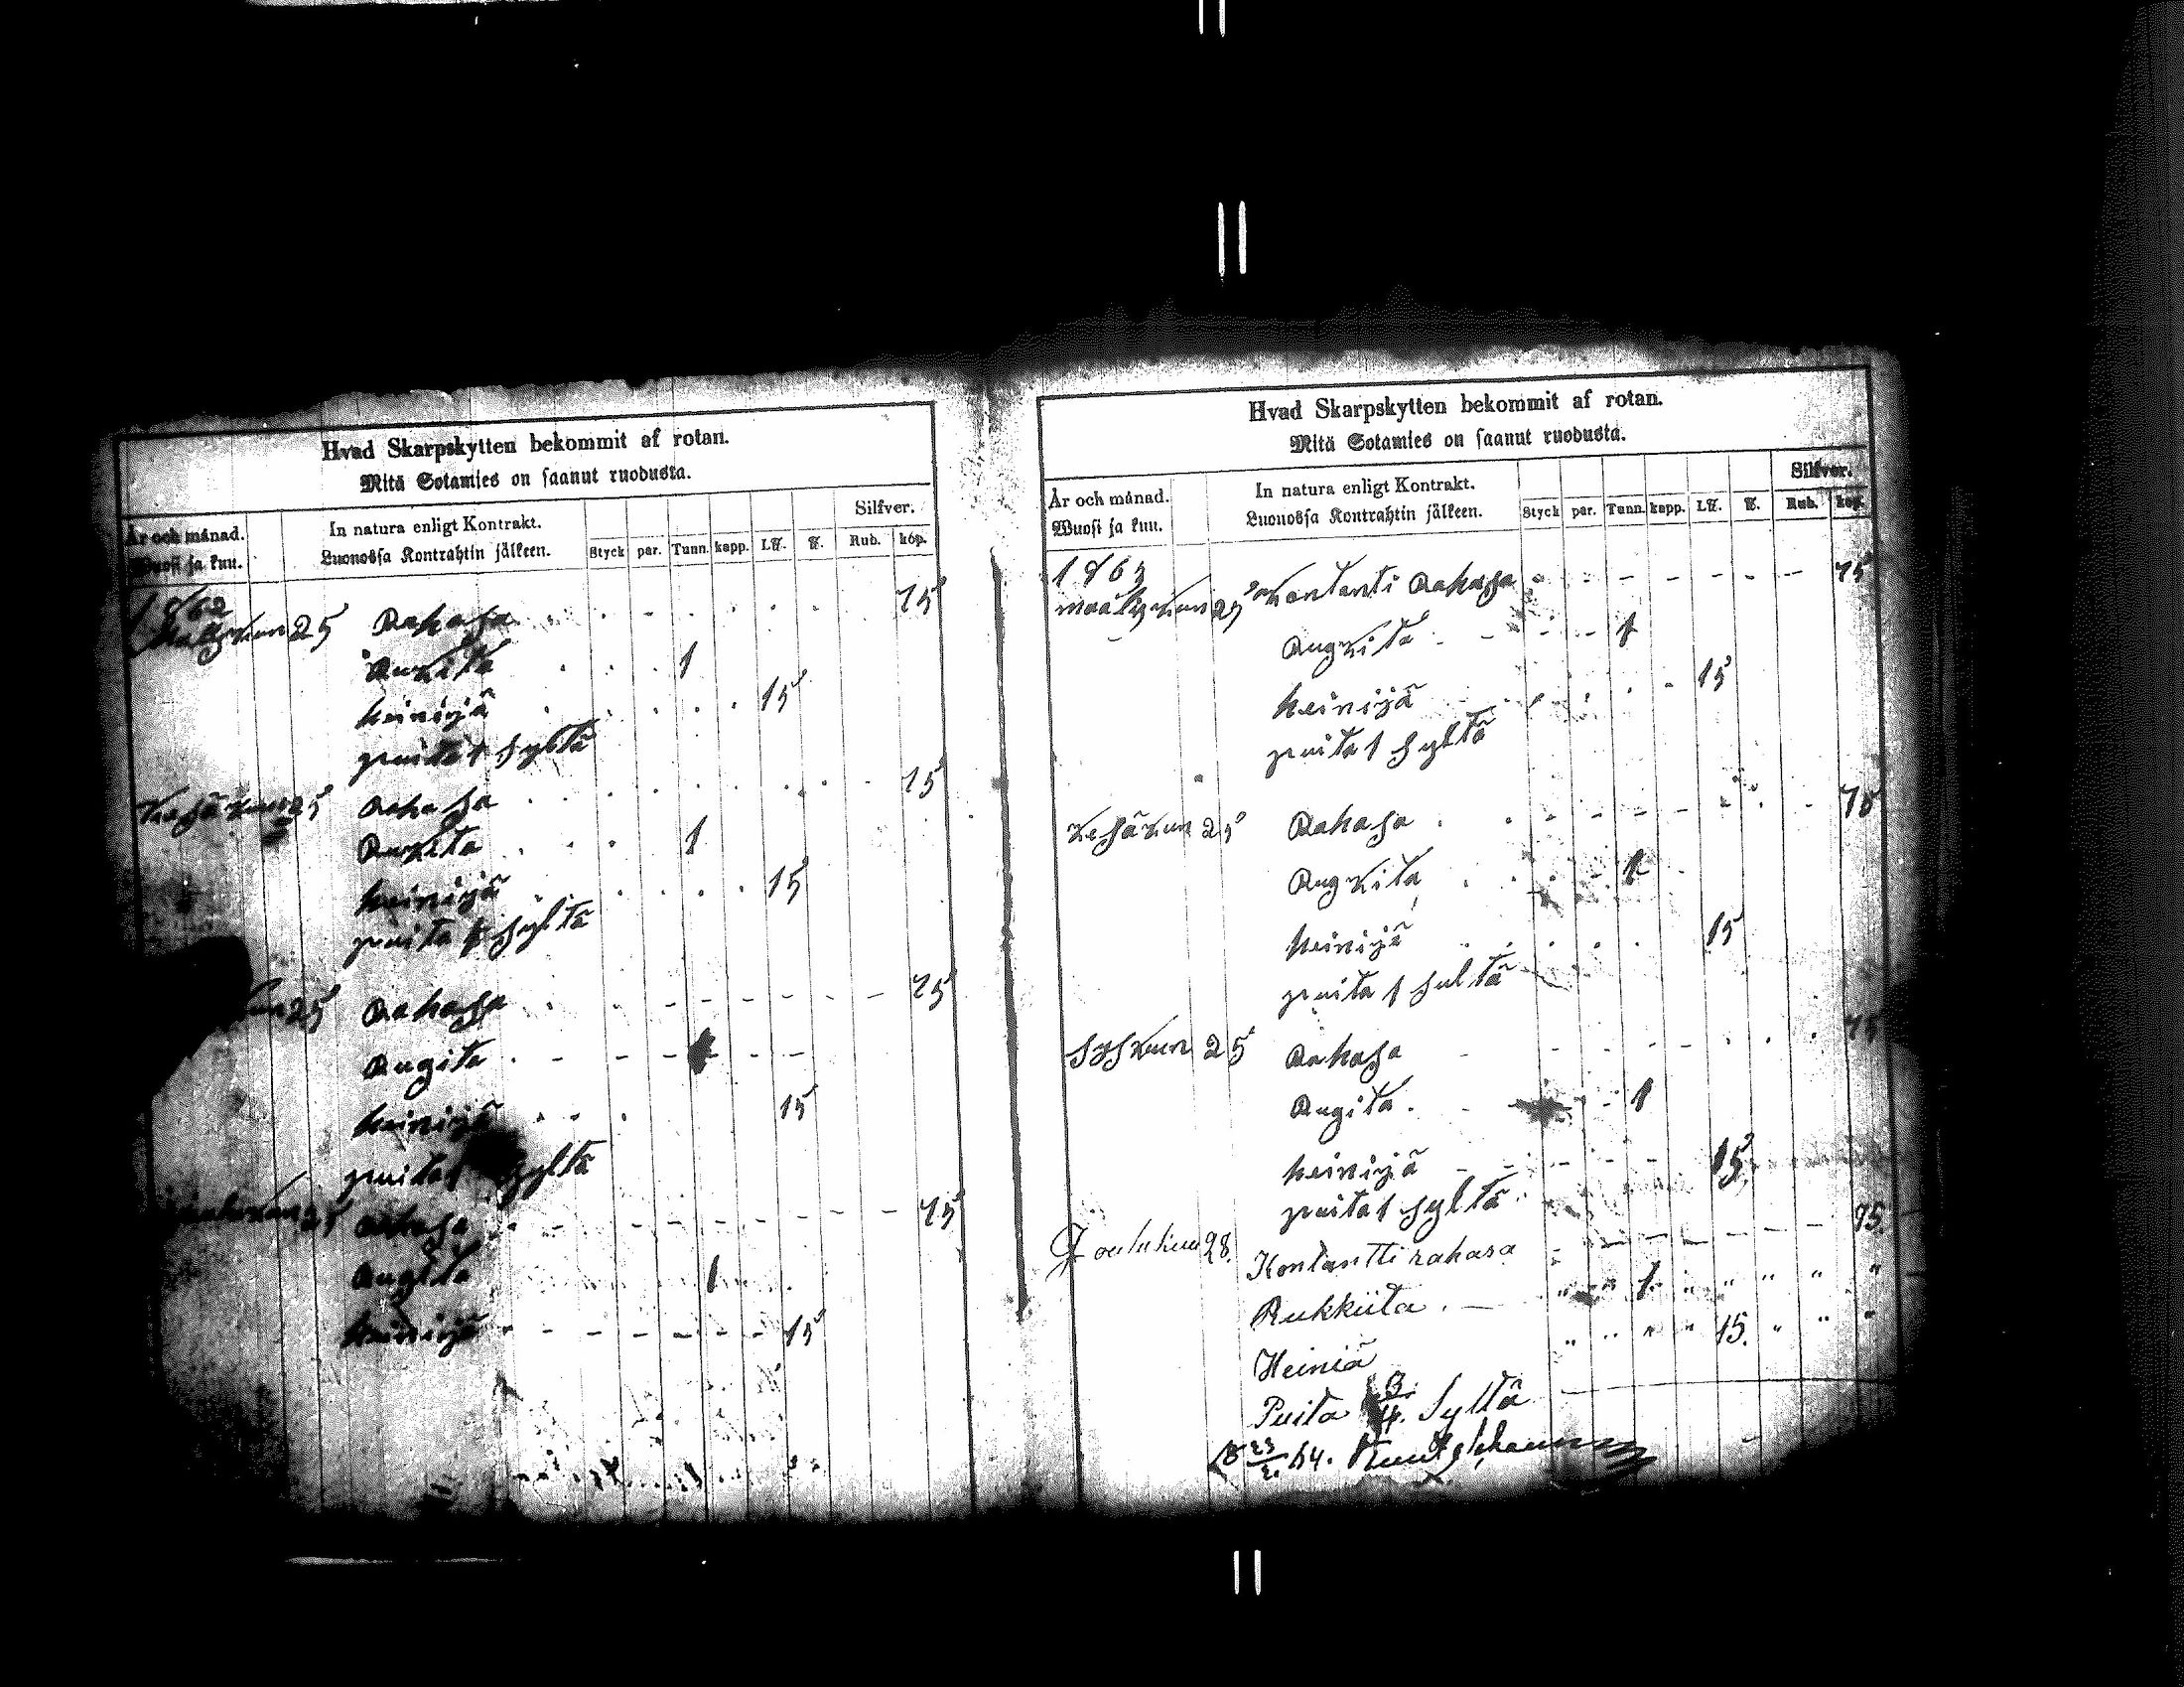 Hvad Skarpskytten bekommit af rotan.
Mitä Sotamies on saanut ruodusta.
År och månad. In natura enligt Kontrakt. Silfver.
Wuosi ja kuu. Luonossa Kontrahtin jälkeen. Styck par. Tunn. kapp. L℔. ℔. Rub. kop.
1862
25 Rahasa 75
Rukita 1
heinijä 15
puita 1 syltä
Kesäkuun 25 Rahasa 75
Rukita 1
heinijä 15
puita 1 syltä
kuun 25 Rahasa 75
Rugita
heinijä 15
puita 1 syltä
Joulukuun 25 Rahasa 75
Rugita 1
heinijä 15
Hvad Skarpskytten bekommit af rotan.
Mitä Sotamies on saanut ruodusta.
År och månad. In natura enligt Kontrakt. Silfver.
Wuosi ja kuu. Luonossa Kontrahtin jälkeen. Styck par. Tunn. kapp. L℔. ℔. Rub. kop.
1863
maalizkuun 25 kontanti Rahasa 75
Rugkita 1
heinijä 15
puita 1 syltä
kesäkun 25 Rahasa 75
Rugkita 1
heinijä 15
puita 1 sultä
syskuun 25 Rahasa 75
Rugita 1
heinijä 15
puita 1 syltä
Joulukuu 28. Kontantti rahasa 75
Rukkiita 1 " " " "
Heiniä " " " " 15. " " "
Puita 3/4. Syltä
18 23/2. 64.